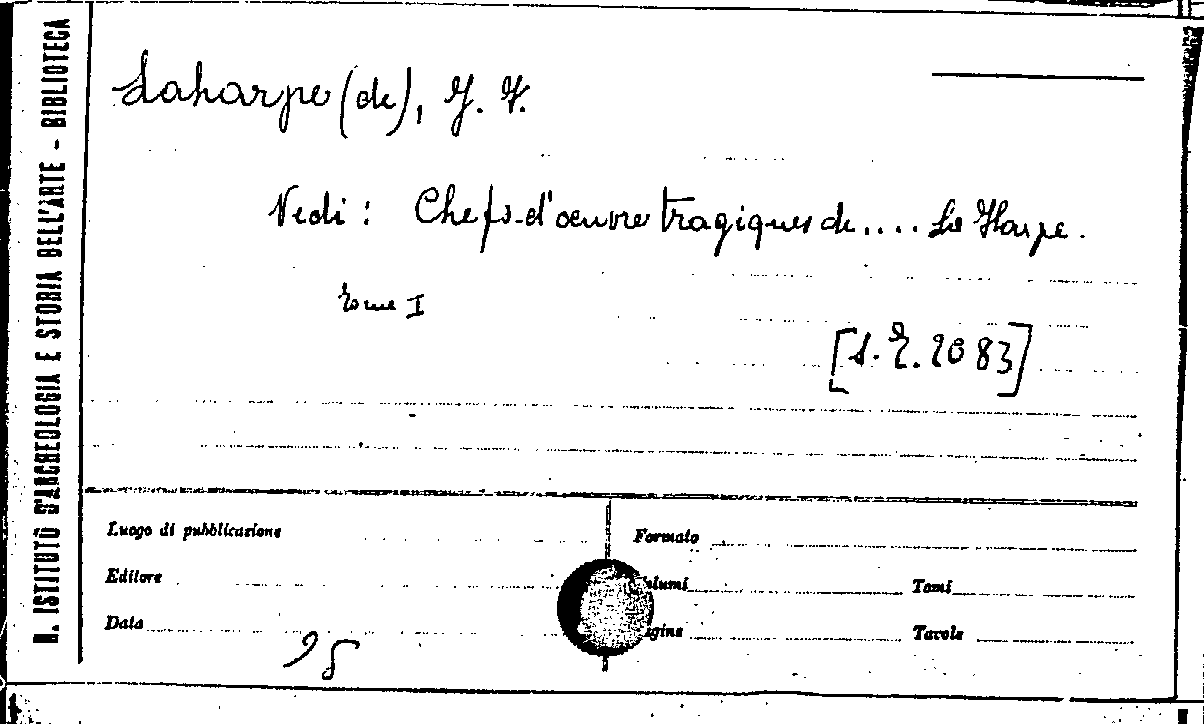 R. ISTITUTO D'ARCHEOLOGIA E STORIA DELL'ARTE - BIBLIOTECA
Laharpe (de), J. F.
Vedi : Chefs-d'oeuvre tragiques de.... La Harpe.
tome I
[S. T. 2083]
Luogo di pubblicazione
Formato
Editore
Tomi
Data
Tavole
95